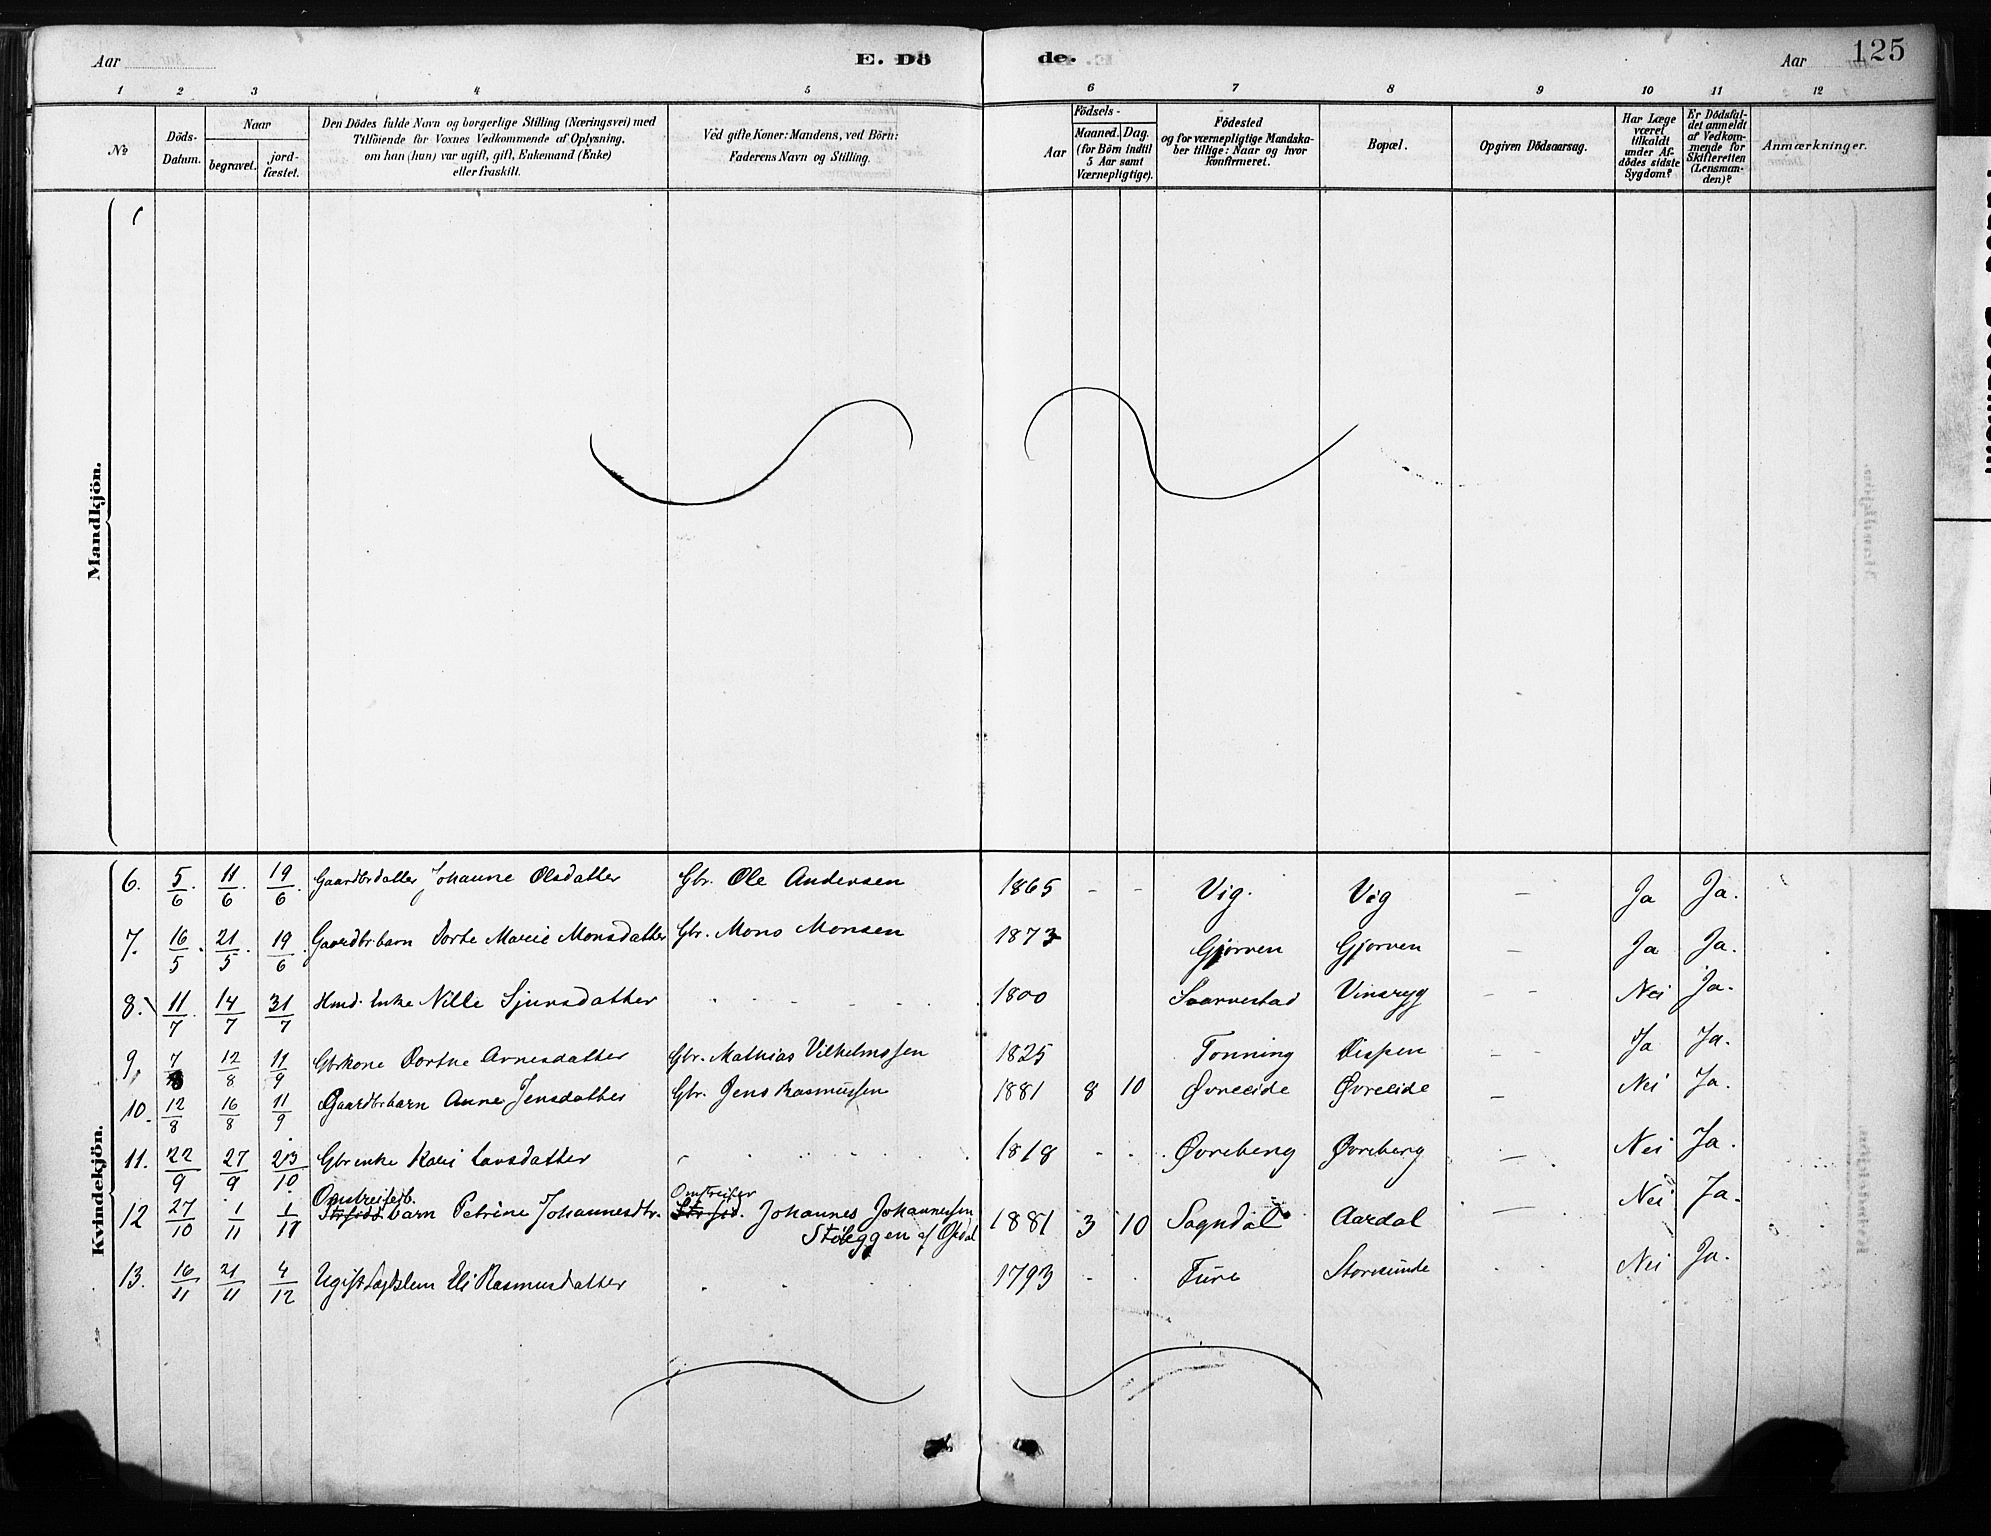 Aar
E. Dö
de.
Aar
125
1 2 3 4 5 6 7 8 9 10 11 12
№
Döds-
Datum.
Naar
begravet.
jord-
fæstet.
Den Dödes fulde Navn og borgerlige Stilling (Næringsvei) med
Tilföiende for Voxnes Vedkommende af Oplysning,
om han (hun) var ugift, gift, Enkemand (Enke)
eller fraskilt.
Ved gifte Koner: Mandens, ved Börn:
Faderens Navn og Stilling.
Födsels-
Aar
Maaned.
Dag.
(for Börn indtil
5 Aar samt
Værnepligtige).
Födested
og for værnepligtige Mandska-
ber tillige: Naar og hvor
konfirmeret.
Bopæl.
Opgiven Dödsaarsag.
Har Læge
været
tilkaldt
under Af-
dödes sidste
Sygdom?
Er Dödsfal-
det anmeldt
af Vedkom-
mende for
Skifteretten
(Lensman-
den)?
Anmærkninger.
Mandkjön.
Kvindekjön.
6. 5/6. 11/6. 19/6. Gaardbrdatter Johanne Olsdatter Gbr. Ole Andersen 1865 - - Vig. Vig - Ja Ja.
7. 16/5. 21/5. 19/6. Gaardbrbarn Dorte Marie Monsdatter Gbr. Mons Monsen 1873 Gjørven Gjørven - Ja Ja.
8. 11/7 14/7 31/7 Hmd. Enke Nille Sjursdatter 1800 Saarvestad Vinsryg - - Nei Ja.
9. 7/8 12/8 11/9 Gbrkone Dorthe Arnesdatter Gbr. Mathias Vilhelmssen 1825 Tonning Øispen - - Ja Ja.
10. 12/8 16/8 11/9 Gaardbrbarn Anne Jensdatter Gbr. Jens Rasmussen 1881 8 10 Øvreeide Øvreeide - Nei Ja.
11. 22/9 27/9 23/10 Gbrenke Kari Larsdatter 1818 - . Øvreberg Øvreberg - Nei Ja.
Omstreiferb. Omstreifer
12 27/10 1/11 1/11 Strsidd barn Petrine Johannesdtr. Strsid. Johannes Johannessen 1881 3 10 Sogndal Aardal - Nei Ja.
Støleggen af
13. 16/11 21/11 4/12 Ugift Lægdslem Eli Rasmusdatter 1793 - . Fure Storesunde Nei Ja.